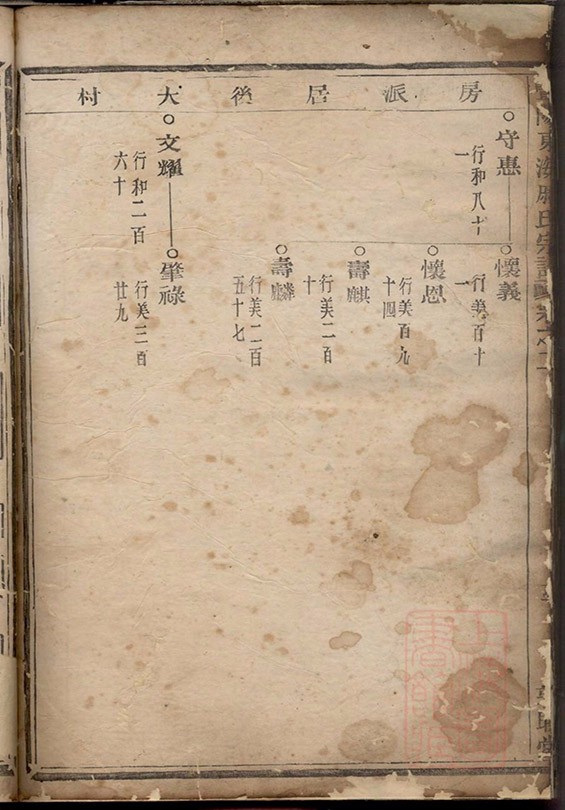 房派居後大村
守惠
行和八十一
懷義
行美百十一
懷恩
行美百九十四
壽麒
行美二百十
壽麟
行美二百五十七
文耀
行和二百六十
肇祿
行美三百廿九
東海
氏宗譜